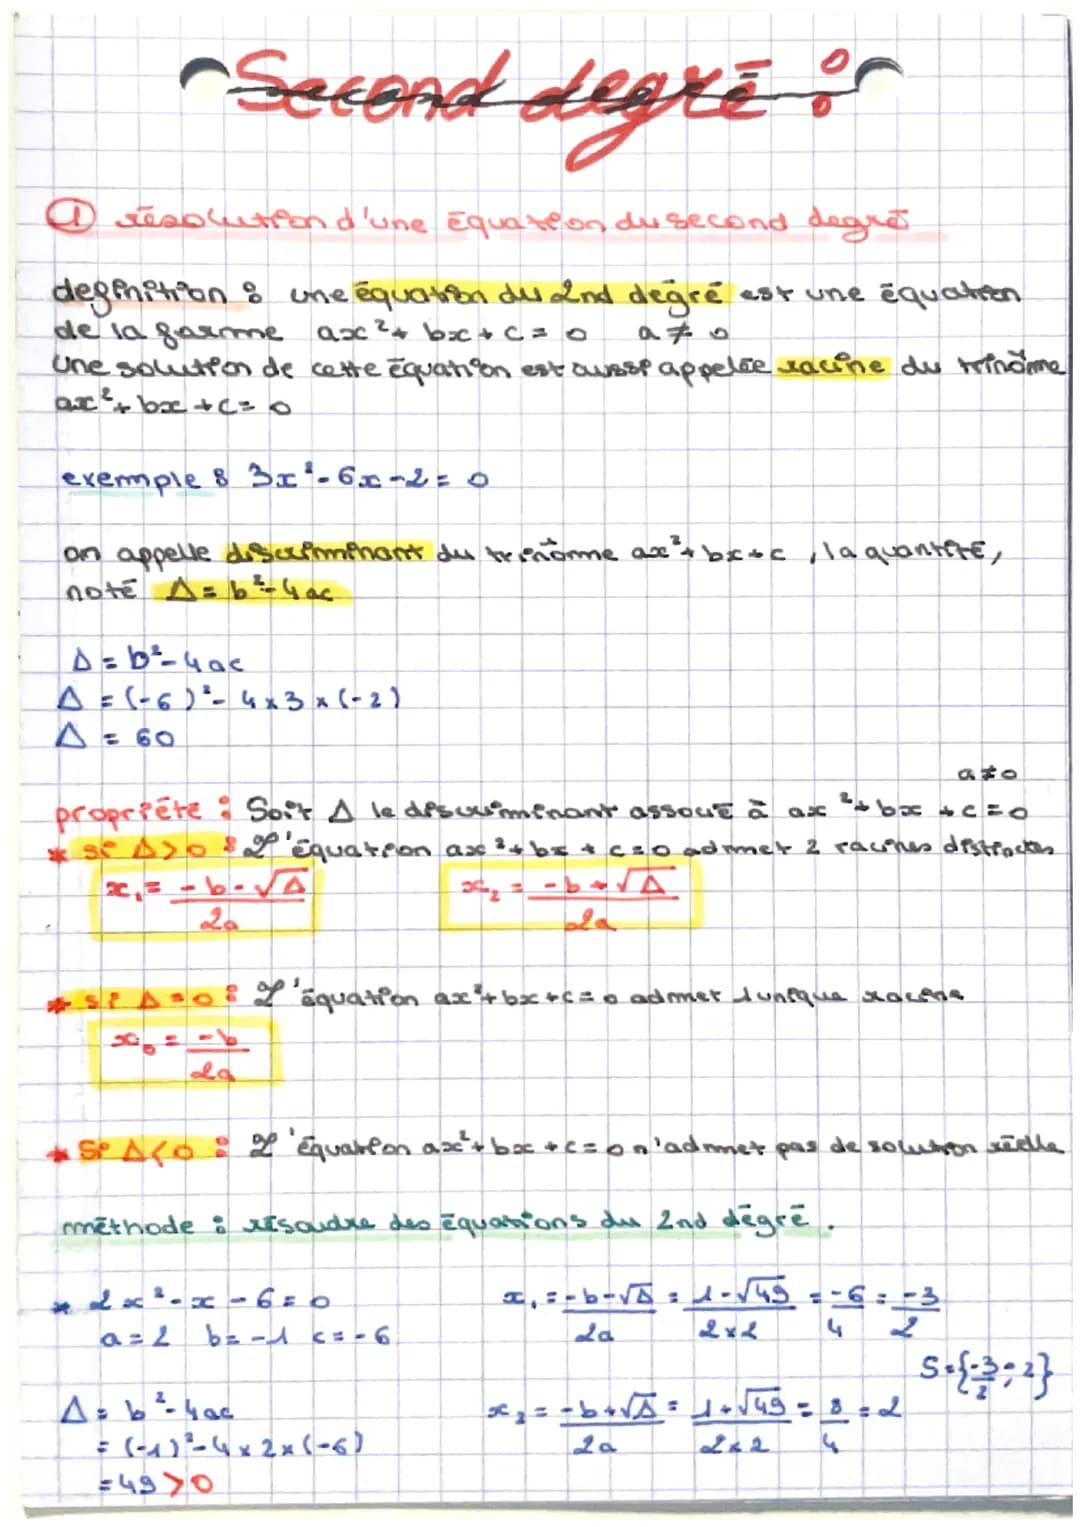 Second degré :
① résolution d'une équation du second degré
definition : une équation du 2nd degré est une équation
de la forme ax² + bx + c = 0 a ≠ 0
Une solution de cette équation est aussi appelée racine du trinôme
ax² + bx + c = 0
exemple : 3x² - 6x - 2 = 0
on appelle discriminant du trinôme ax² + bx + c , la quantité,
noté Δ = b² - 4ac
Δ = b² - 4ac
Δ = (-6)² - 4 x 3 x (-2)
Δ = 60
a ≠ 0
propriété : Soit Δ le discriminant associé à ax² + bx + c = 0
* si Δ > 0 : L'équation ax² + bx + c = 0 admet 2 racines distinctes
x₁ = (-b - √Δ) / 2a x₂ = (-b + √Δ) / 2a
* si Δ = 0 : L'équation ax² + bx + c = 0 admet 1 unique racine
x₀ = -b / 2a
* Si Δ < 0 : L'équation ax² + bx + c = 0 n'admet pas de solution réelle
méthode : résoudre des équations du 2nd degré .
* 2x² - x - 6 = 0
a = 2 b = -1 c = -6
Δ = b² - 4ac
= (-1)² - 4 x 2 x (-6)
= 49 > 0
x₁ = (-b - √Δ) / 2a = (1 - √49) / (2 x 2) = -6 / 4 = -3 / 2
S = {-3/2 ; 2}
x₂ = (-b + √Δ) / 2a = (1 + √49) / (2 x 2) = 8 / 4 = 2